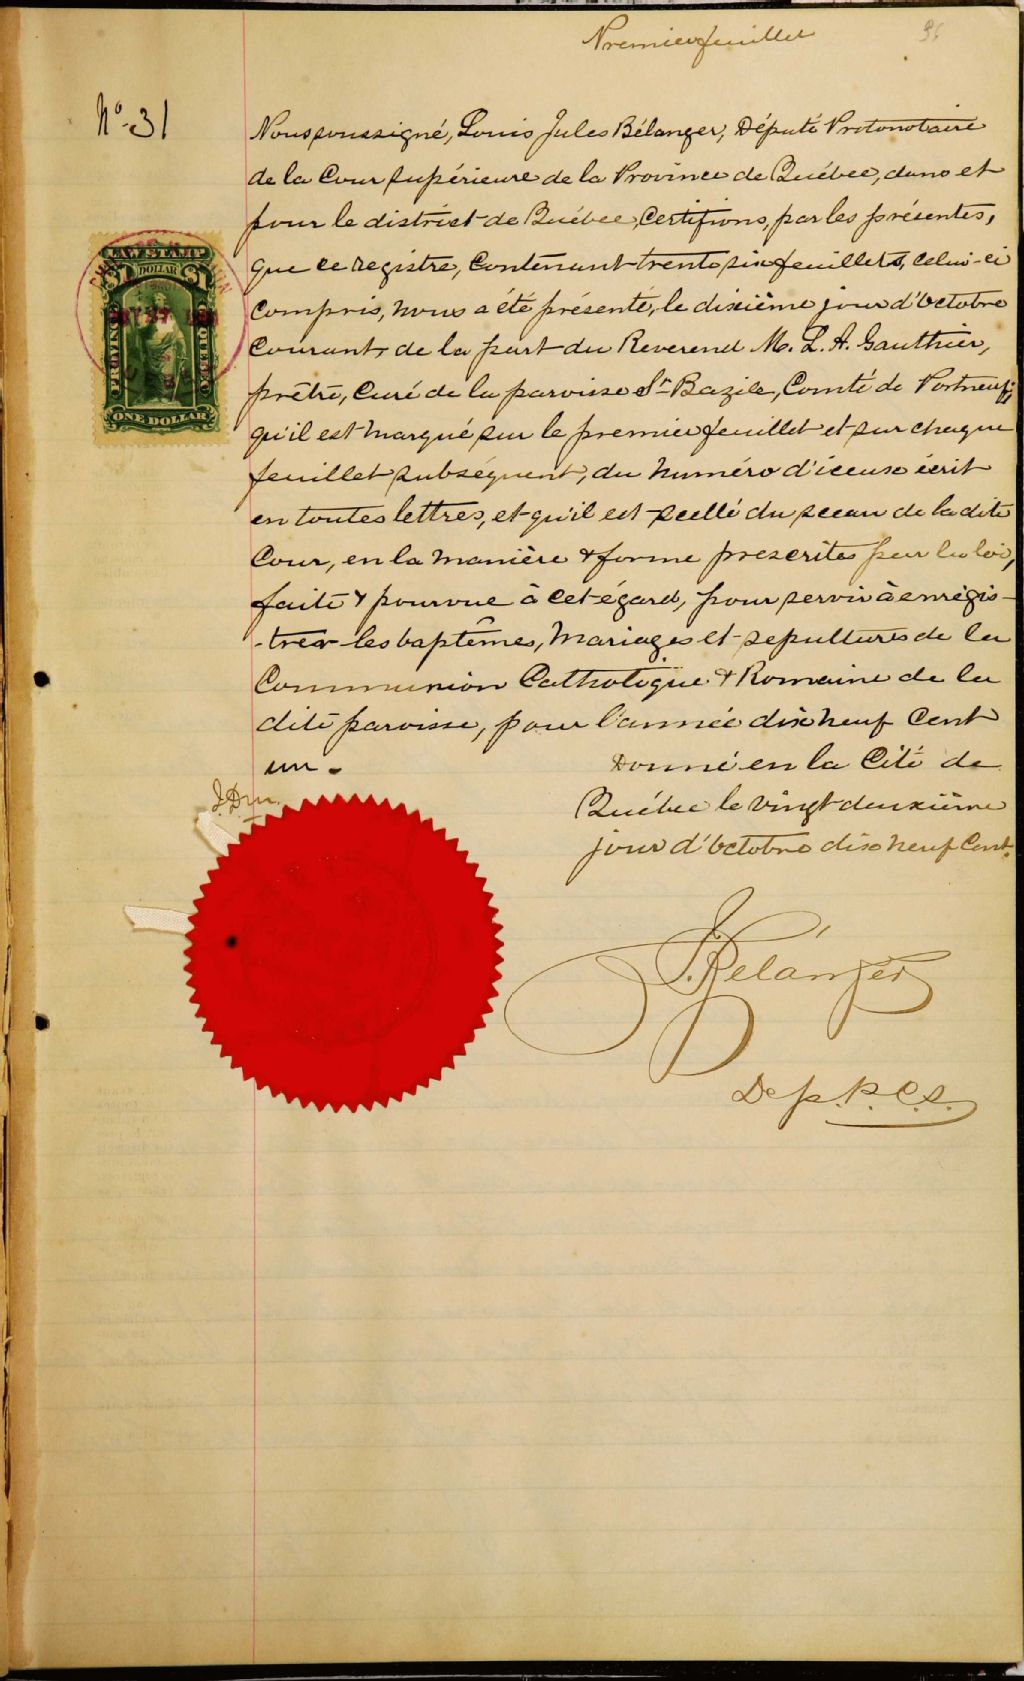 Premier feuillet
No. 31
Nous soussigné, Louis Jules Bélanger, Député Protonotaire
de la Cour supérieure de la Province de Québec, dans et
pour le district de Québec, Certifions, par les présentes,
que ce registre, Contenant trente six feuillets, celui-ci
Compris, nous a été présenté, le dixième jour d'Octobre
Courant, de la part du Reverend M. L. A. Gauthier,
prêtre, Curé de la paroisse St Bazile, Comté de Portneuf,
qu'il est marqué sur le premier feuillet et sur chaque
feuillet subséquent, du numéro d'iceux écrit
en toutes lettres, et qu'il est scellé du sceau de la dite
Cour, en la manière & forme prescrites par la loi,
faite & pourvue à cet égard, pour servir à enrégis-
-trer les baptêmes, Mariages et sepultures de la
Communion Catholique & Romaine de la
dite paroisse, pour l'année dix neuf Cent
un.
Donné en la Cité de
Québec le vingt deuxième
jour d'Octobre dix neuf Cent.
J. Bélanger
Dep. P. C. S.
LAW STAMP
$1 DOLLAR $1
PROVINCE
QUEBEC
ONE DOLLAR